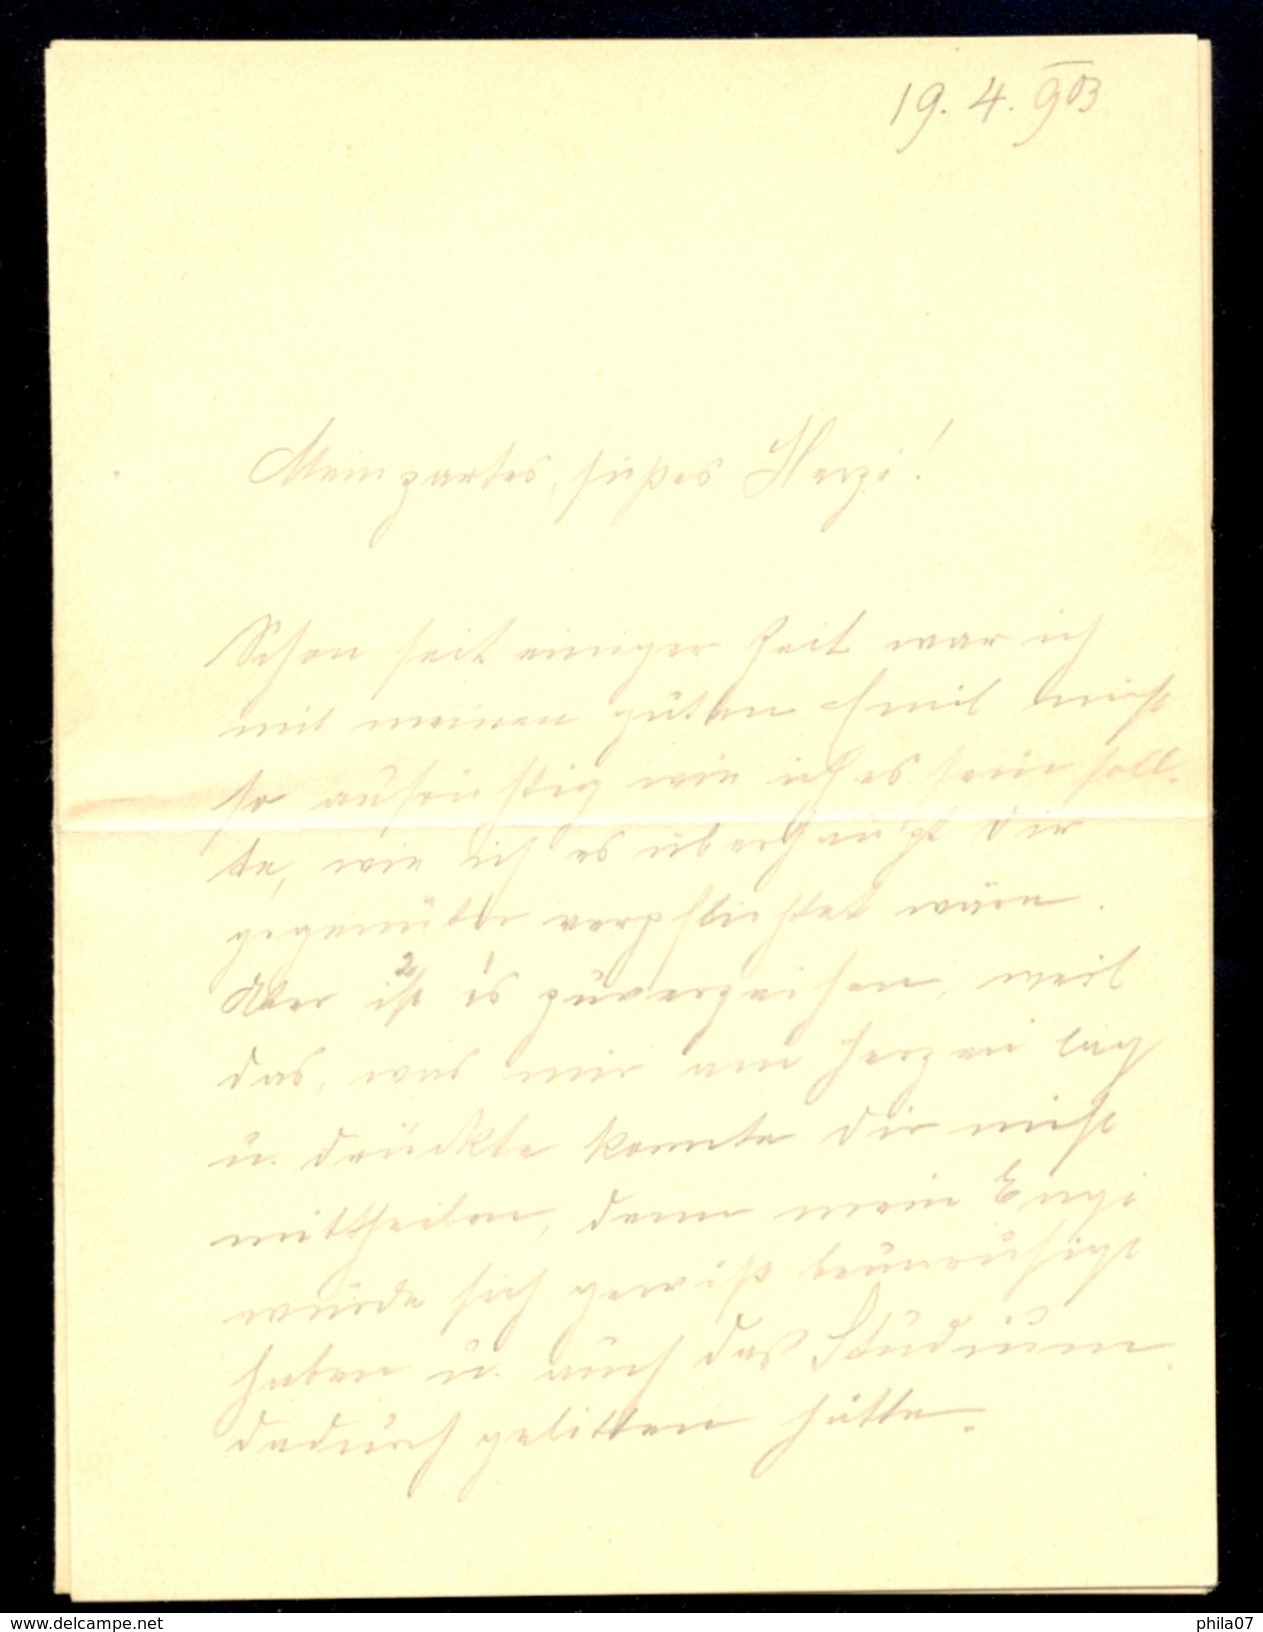 19. 4. 903
Mein zartes, süßes Herzi!
Schon seit einiger Zeit war ich
mit meinen guten Emil nicht
so aufrichtig wie ich es sein soll-
te, wie ich es überhaupt Dir
gegenüber verpflichtet wäre.
Aber ist es zuverzeihen, weil
das, was mir am Herzen lag
u. drückte konnte Dir nicht
mittheilen, denn mein Engi
würde sich gewiß beunruhigt
haben u. auch das Studium
dadurch gelitten hätte.
www.delcampe.net
phila07